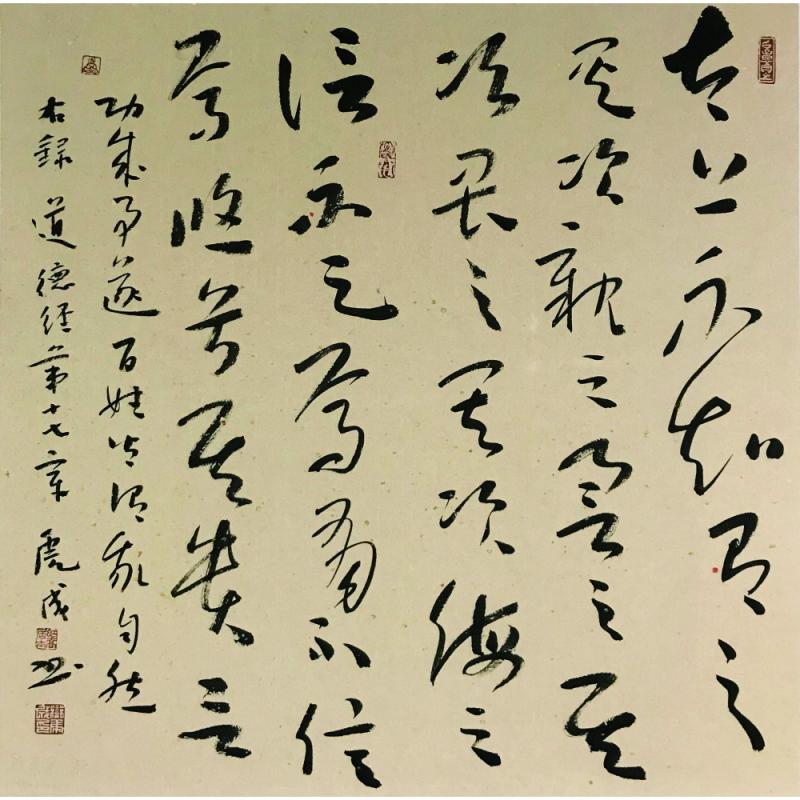 太上不知有之
其次親之譽之其
次畏之其次侮之
信不足焉有不信
焉悠兮其貴言
功成事遂百姓皆謂我自然
右録道德經第十七章虎成书